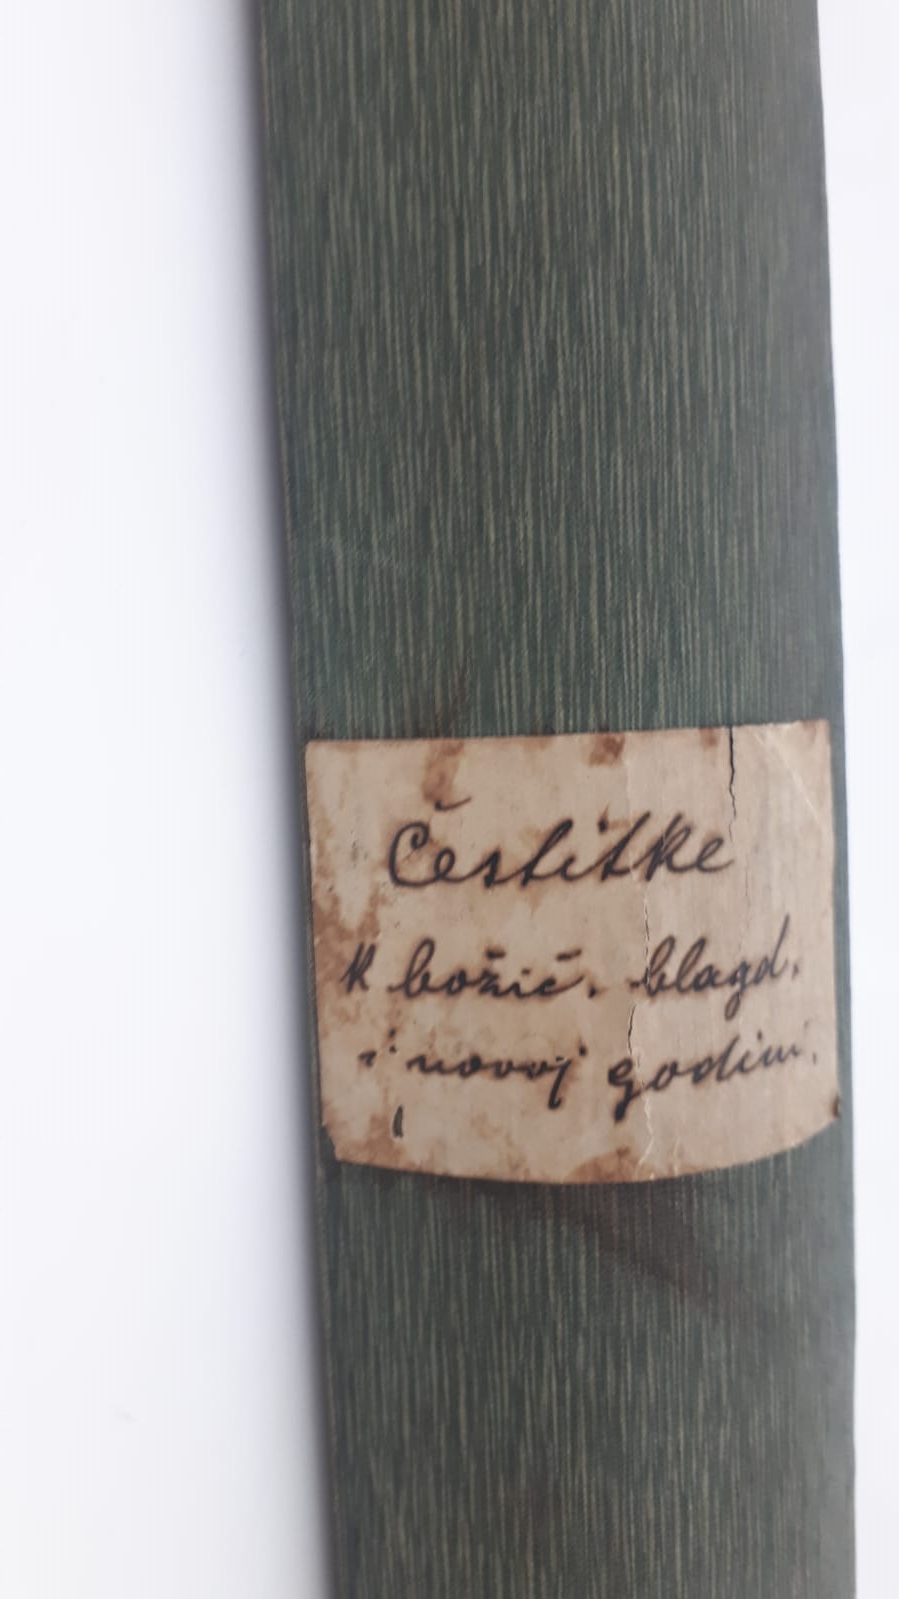 Čestitke
k božić. blagd.
i novoj godini.